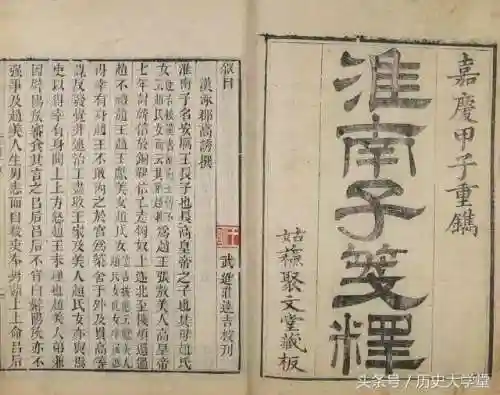 嘉慶甲子重鐫
淮南子箋釋
姑蘇聚文堂藏板
武進莊逵吉校刊
敘目
漢涿郡高誘撰
淮南子名安厲王長子也長高皇帝之子也其母趙氏
女爲趙王張敖美人高皇帝
七年討韓信於銅鞮信亡走匈奴上遂北至樓煩還過
趙不禮趙王趙王獻美女趙氏女
得幸有身趙王不敢內之於宮爲築舍于外及貫高等
反發覺并逮治王盡收王家及美人趙氏女亦與焉
吏以得幸有身聞上上方怒趙王未理也趙美人弟兼
因辟陽侯審食其言之呂后呂后不肯白辟陽侯亦不
强爭及趙美人生男恚而自殺吏奉男詣上上命呂后
头条号 / 历史大学堂